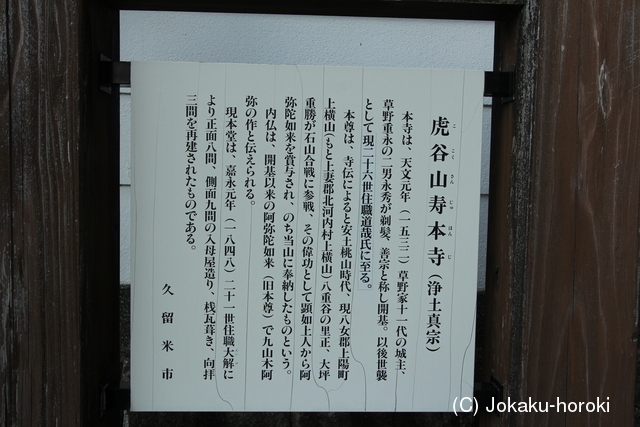 虎谷山寿本寺（浄土真宗）
ここくさんじゅほんじ
本寺は、天文元年（一五三二）草野家十一代の城主、
草野重永の二男永秀が剃髪、善宗と称し開基。以後世襲
として現二十六世住職道哉氏に至る。
本尊は、寺伝によると安土桃山時代、現八女郡上陽町
上横山（もと上妻郡北河内村上横山）八重谷の里正、大坪
重勝が石山合戦に参戦、その偉功として顕如上人から阿
弥陀如来を賞与され、のち当山に奉納したものという。
内仏は、開基以来の阿弥陀如来（旧本尊）で九山木阿
弥の作と伝えられる。
現本堂は、嘉永元年（一八四八）二十一世住職大解に
より正面八間、側面九間の入母屋造り、桟瓦葺き、向拝
三間を再建されたものである。
久留米市
(C) Jokaku-horoki